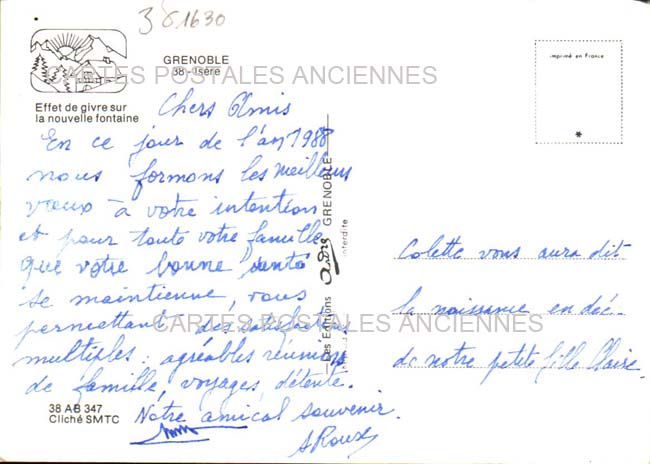 381630
GRENOBLE
38 - Isère
CARTES POSTALES ANCIENNES
imprimé en France
*
Effet de givre sur
la nouvelle fontaine
Chers Amis
En ce jour de l'an 1988
nous formons les meilleurs
vœux à votre intention
et pour toute votre famille
que votre bonne santé
se maintienne, vous
permettant des satisfactions
multiples : agréables réunions
de famille, voyages, détente.
Notre amical souvenir.
ARoux
38 AB 347
Cliché SMTC
Des Editions André GRENOBLE
interdite
Colette vous aura dit
la naissance en déc.
de notre petite fille Claire.
CARTES POSTALES ANCIENNES